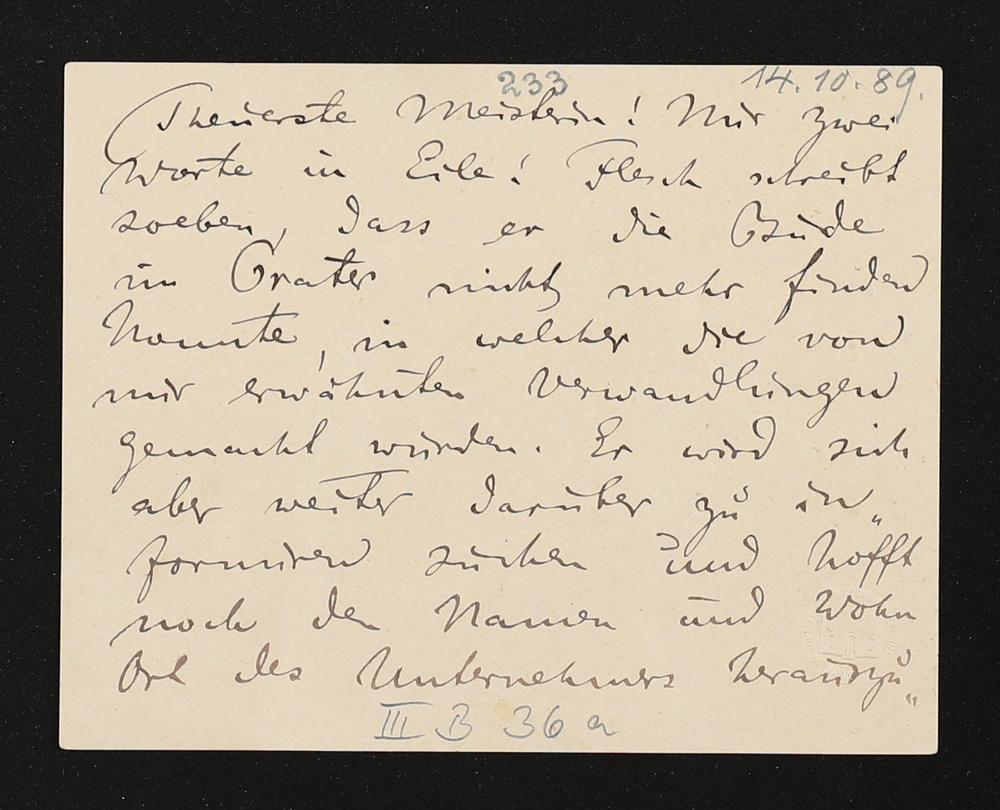 233 14.10.89.
Theuerste Meisterin! Nur zwei
Worte in Eile! Flesch schreibt
soeben, dass er die Bude
im Prater nicht mehr finden
konnte, in welcher die von
mir erwähnten Verwandlungen
gemacht wurden. Er wird sich
aber weiter darüber zu in„
formiren suchen und hofft
noch den Namen und Wohn
Ort des Unternehmers herauszu„
III B 36 a